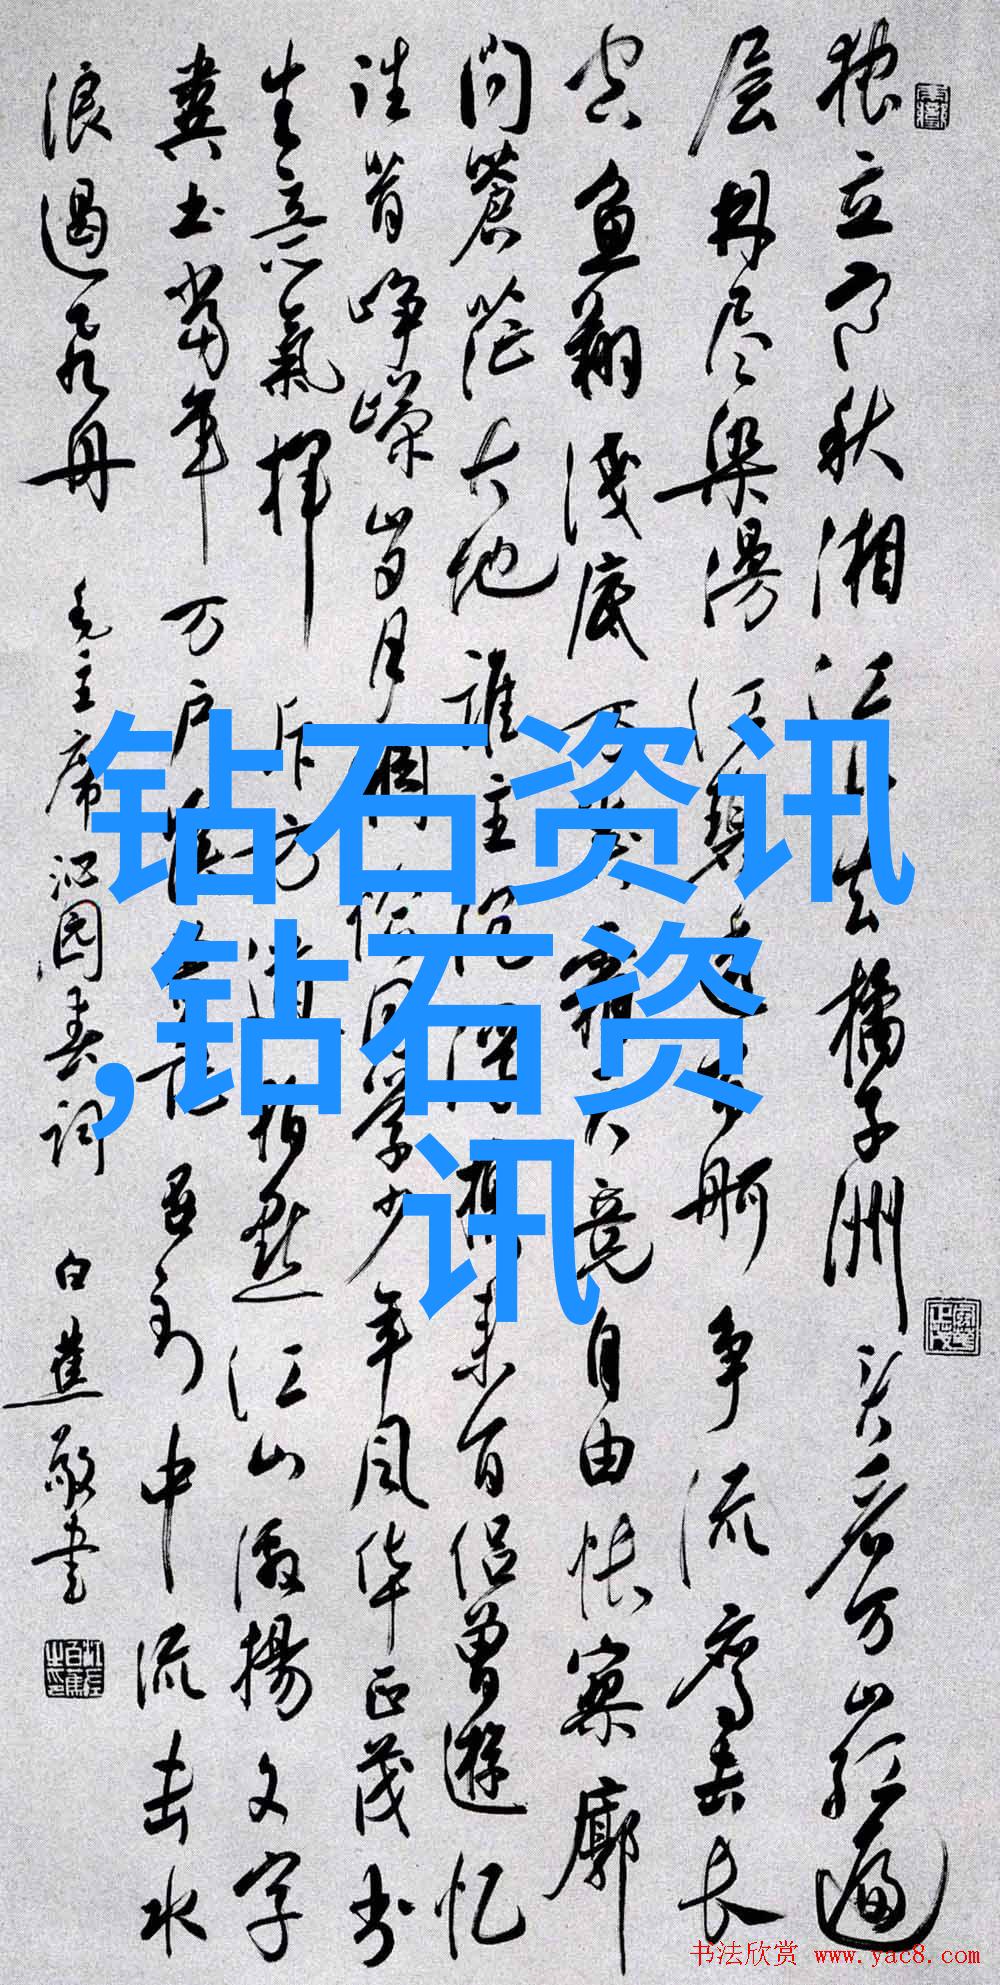 独立寒秋湘江北去橘子洲头看万山红遍
层林尽染漫江碧透百舸争流鹰击长
空鱼翔浅底万类霜天竞自由怅寥廓
问蒼茫大地谁主沉浮携来百侣曾遊忆
往昔峥嵘岁月稠恰同学少年风华正茂书
生意氣挥斥方遒指点江山激揚文字
粪土当年万户侯曾记否到中流击水
浪遏飞舟 毛主席沁园春词 白蕉敬书
钻石资讯
,钻石资
讯
书法欣赏 www.yac8.com